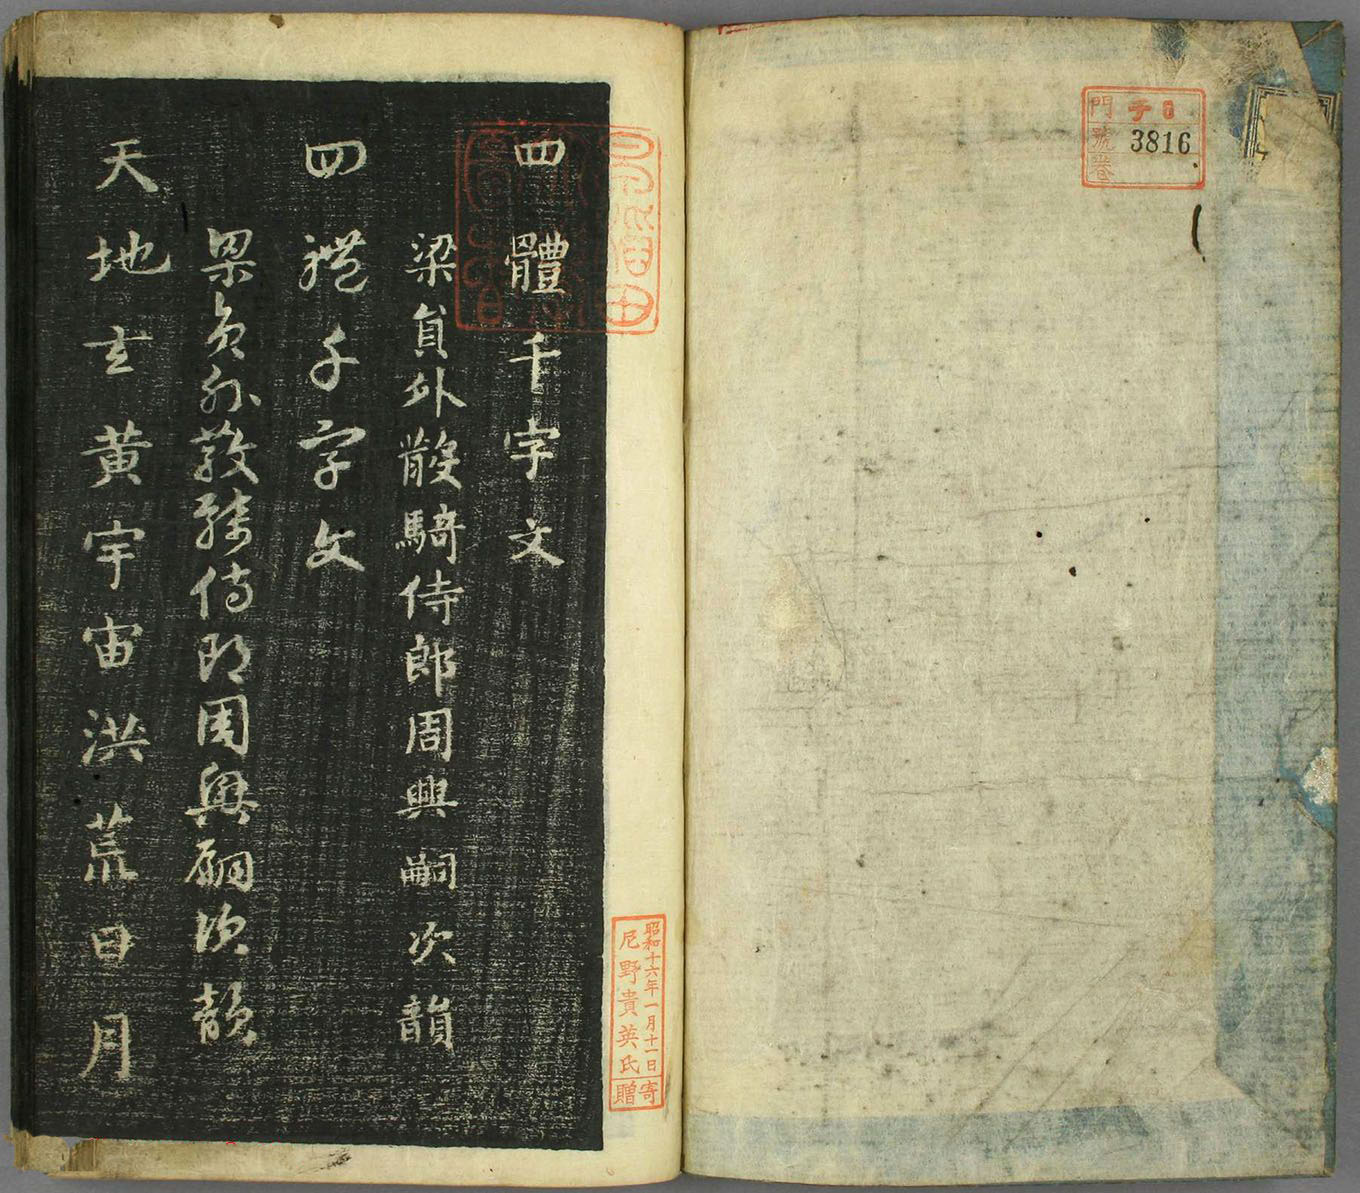 門 チ 6
號 3816
巻
四體千字文
梁貟外散騎侍郎周興嗣次韻
四體千字文
梁貟外散騎侍郎周興嗣次韻
天地玄黄宇宙洪荒日月
昭和十六年一月十一日
尼野貴英氏
寄贈